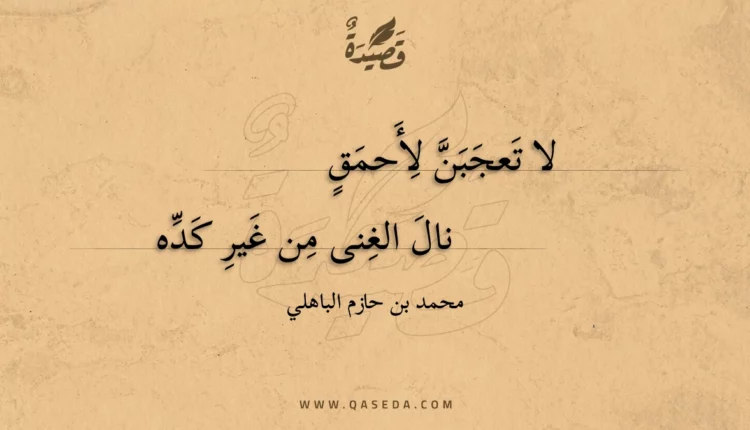 قَصِيْدَةٌ
لا تَعجَبَنَّ لِأَحمَقٍ
نالَ الغِنى مِن غَيرِ كَدِّه
محمد بن حازم الباهلي
WWW.QASEDA.COM